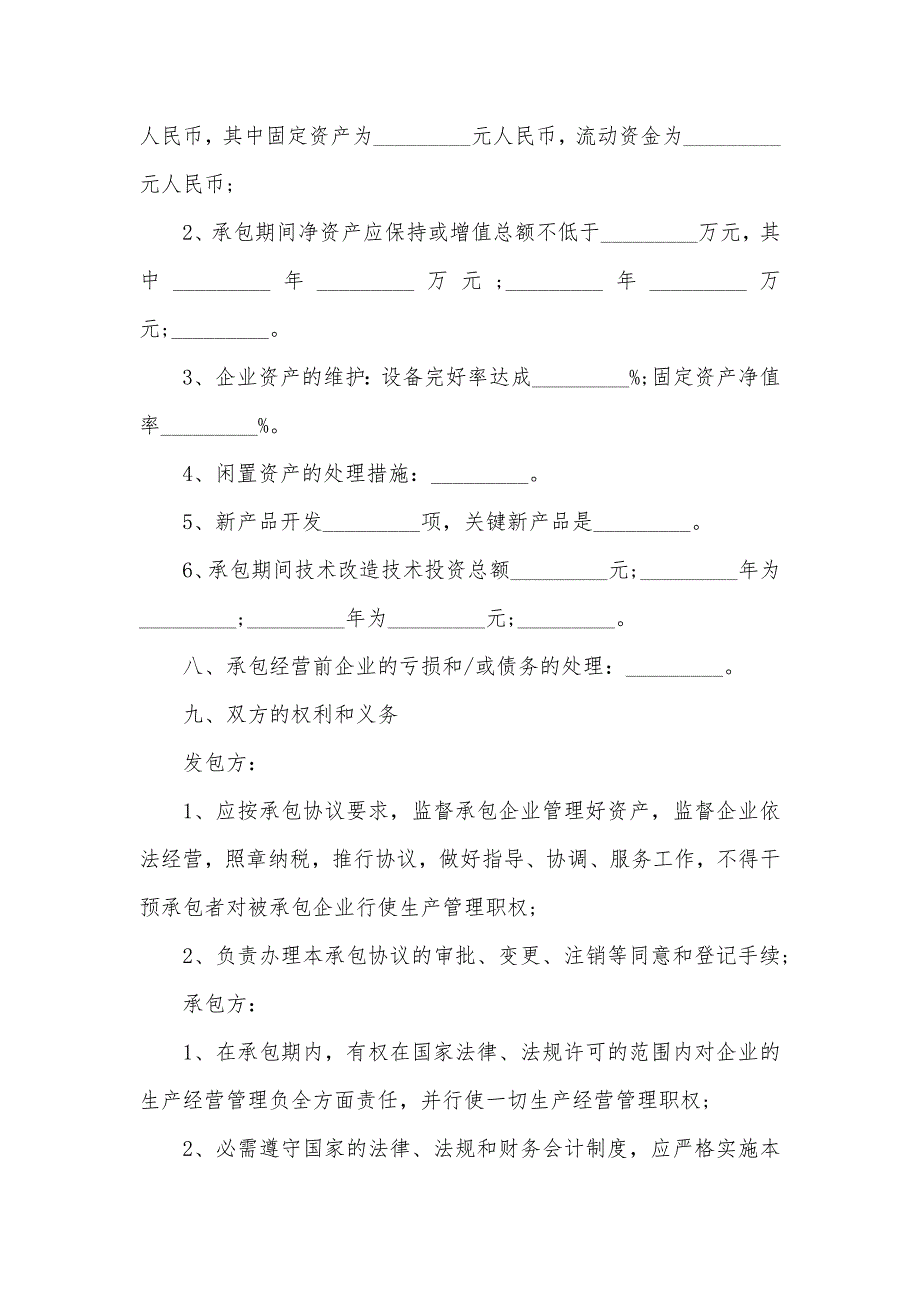 人民币，其中固定资产为_________元人民币，流动资金为_________
元人民币;
2、承包期间净资产应保持或增值总额不低于_________万元，其
中_________年_________万元;_________年_________万
元;_________。
3、企业资产的维护：设备完好率达成_________%;固定资产净值
率_________%。
4、闲置资产的处理措施：_________。
5、新产品开发_________项，关键新产品是_________。
6、承包期间技术改造技术投资总额_________元;_________年为
_________;_________年为_________元;_________。
八、承包经营前企业的亏损和/或债务的处理：_________。
九、双方的权利和义务
发包方：
1、应按承包协议要求，监督承包企业管理好资产，监督企业依
法经营，照章纳税，推行协议，做好指导、协调、服务工作，不得干
预承包者对被承包企业行使生产管理职权;
2、负责办理本承包协议的审批、变更、注销等同意和登记手续;
承包方：
1、在承包期内，有权在国家法律、法规许可的范围内对企业的
生产经营管理负全方面责任，并行使一切生产经营管理职权;
2、必需遵守国家的法律、法规和财务会计制度，应严格实施本